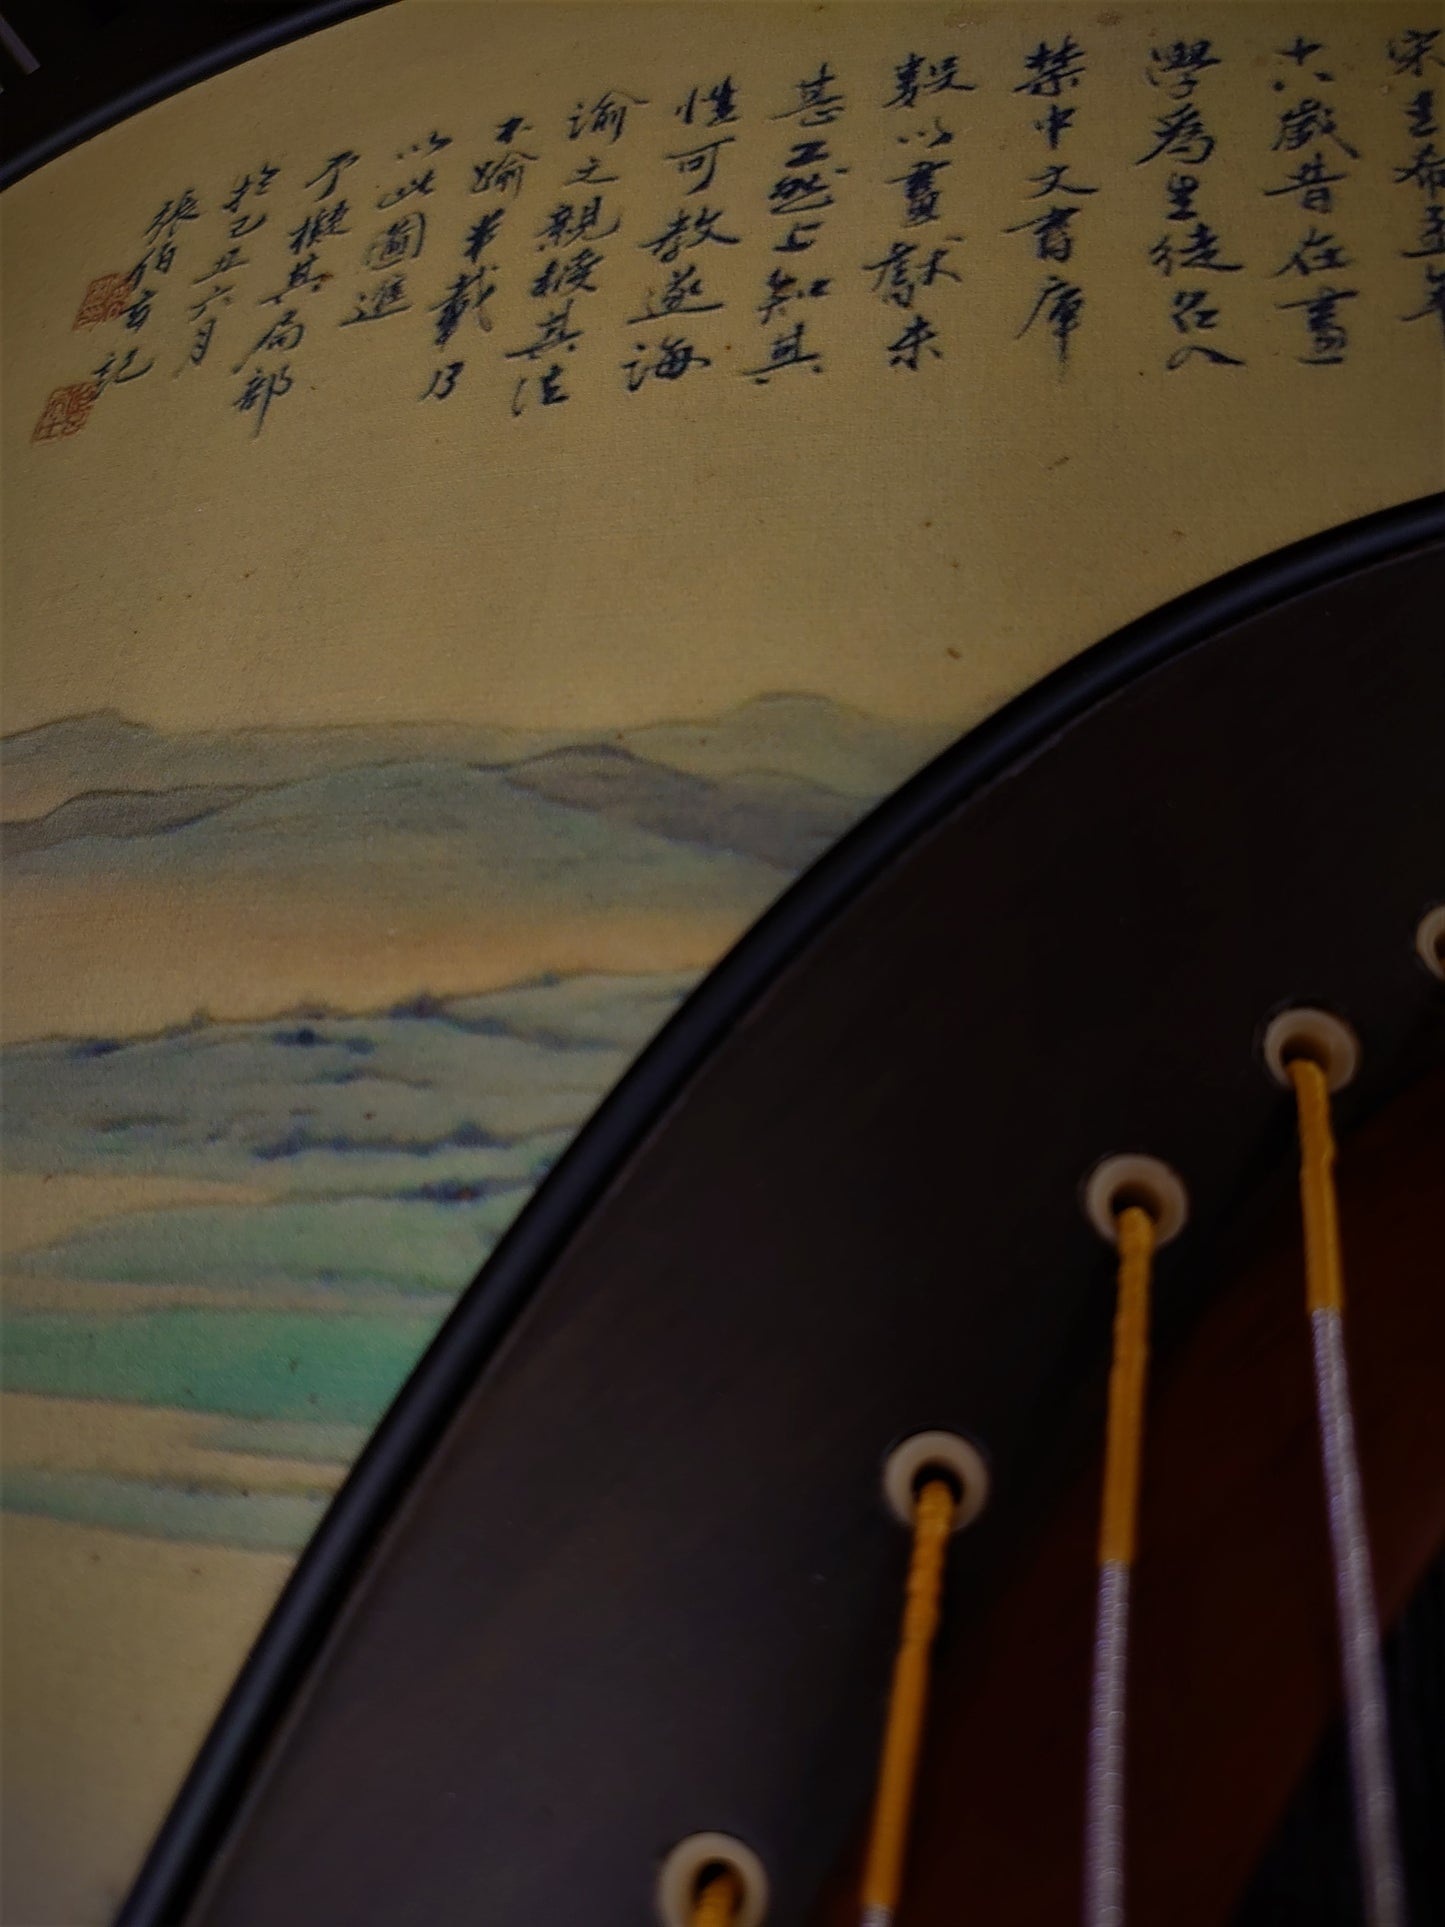 宋王希孟年
十八歲昔在畫
學為生徒召入
禁中文書庫
數以畫獻未
甚工然上知其
性可教遂誨
諭之親授其法
不踰半載乃
以此圖進
予擬其局部
於己丑六月
張伯玄記